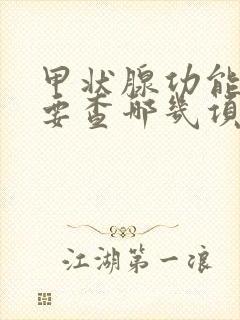 甲状腺功能
要查哪几项
江湖第一浪